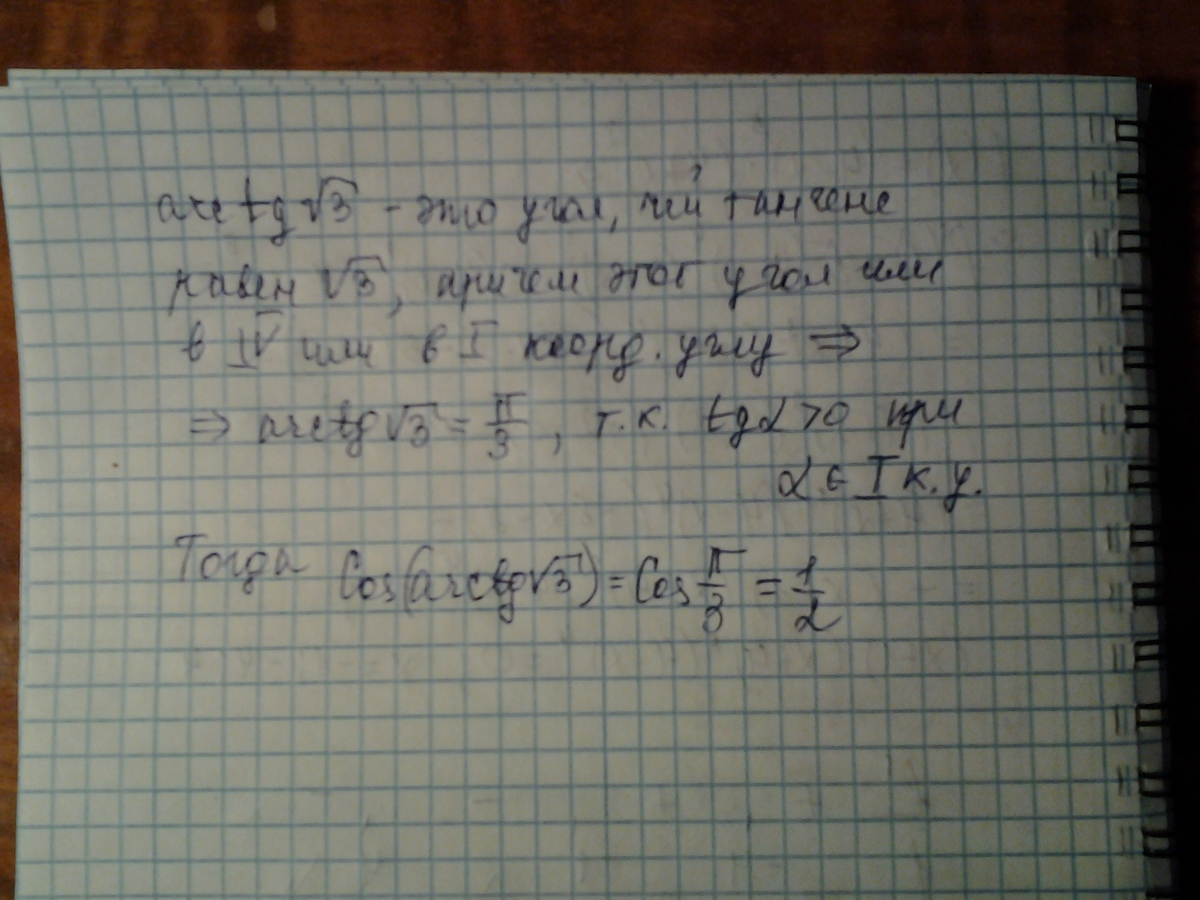 arctg √3 - это угол, чей тангенс
равен √3, причем этот угол или
в IV или в I коорд. углу ⇒
⇒ arctg √3 = π/3 , т.к. tg α > 0 при
α ∈ I к. у.
Тогда Cos(arctg √3) = Cos π/3 = 1/2